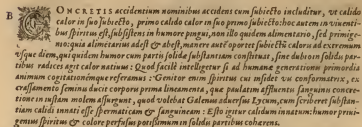 B CONCRETIS accidentium nominibus accidens cum subiecto includitur, vt calido
calor in suo subiecto, primo calido calor in suo primo subiecto: hoc autem in viuenti-
bus spiritus est, subsistens in humore pingui, non illo quidem alimentario, sed primige-
nio: quia alimentarius adest & abest, manere aut oportet subiectũ caloris ad extremum
vsque diem, qui quidem humor cum partis solidæ substantiam constituat, siue duobus solidis par-
tibus radices aget calor natiuus: Quod facilè intelligitur si ad humanæ generationis primordia
animum cogitationémque referamus: Genitor enim spiritus cui insidet vis conformatrix, ex
crassamento seminis ducit corporis prima lineamenta, quæ paulatim affluenti sanguinis concre-
tione in iustam molem assurgunt, quod volebat Galenus aduersus Lycum, cum scriberet substan-
tiam calidi innati esse spermaticam & sanguineam: Esto igitur calidum innatum: humor primi-
genius spiritu & calore perfusus potissimum in solidis partibus cohærens.